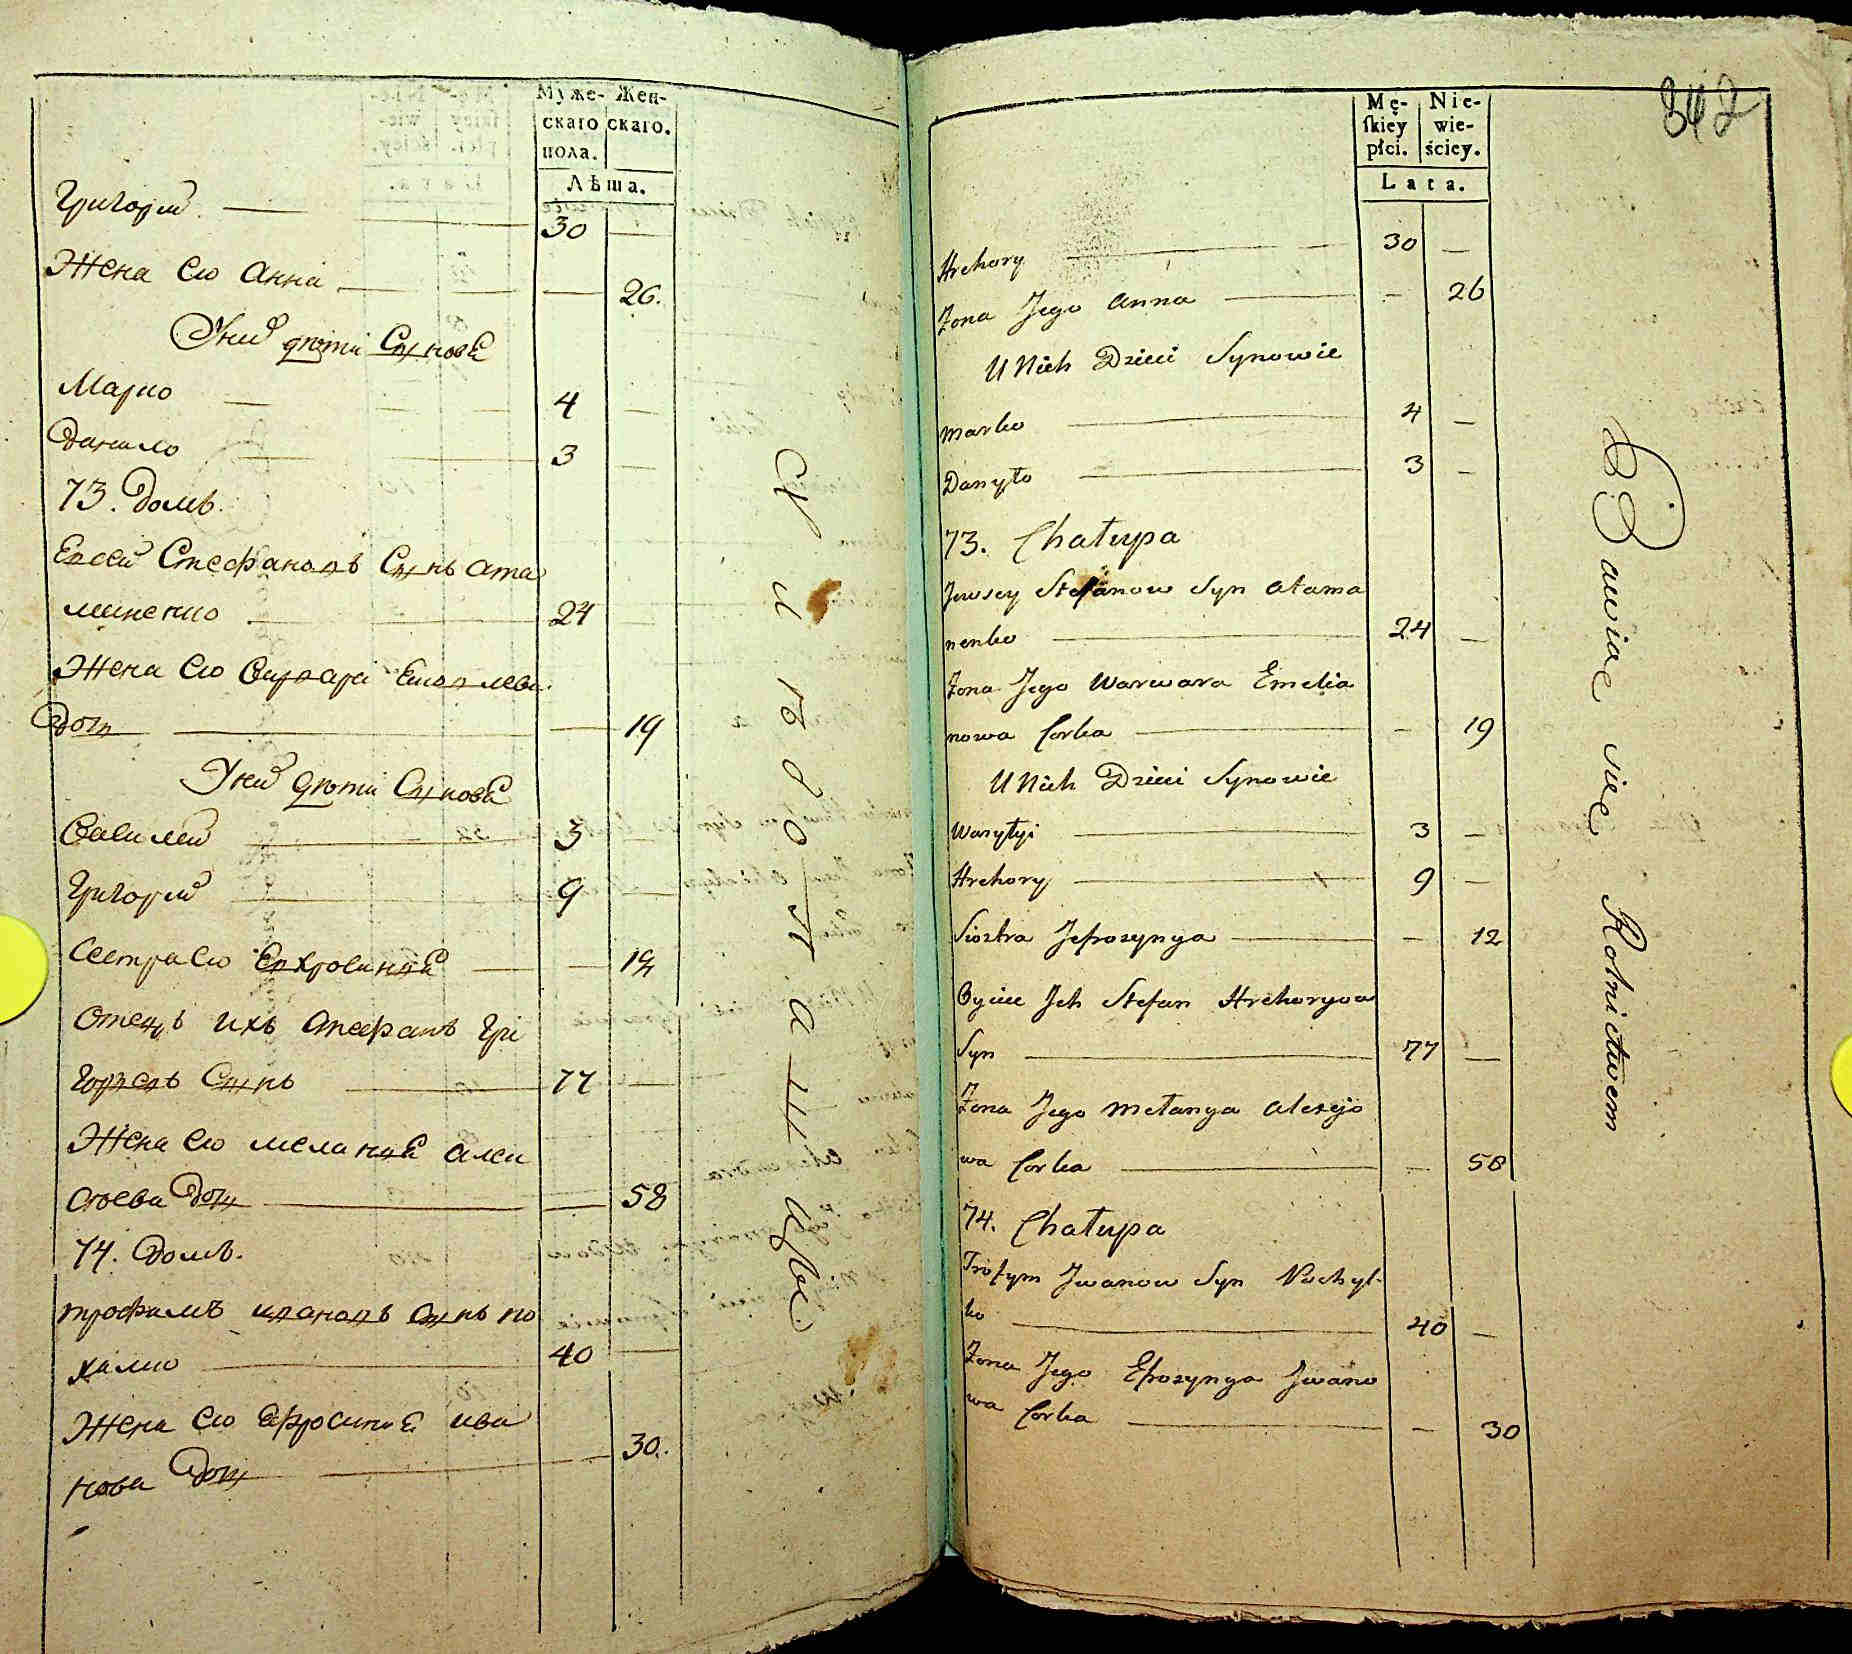 Муже- Жен-
скаго скаго.
пола.
Лѣта.
Григорий 30
Жена Ево Анна 26.
У них дѣти Сынове
Марко 4
Данило 3
73. Домъ.
Евсей Стефановъ Сынъ Ата
маненко 24
Жена Ево Варвара
Дочь 19
У них дѣти Сынове
Василей 3
Григорий 9
Сестра Ево Евхросиния 12
Отецъ ихъ Стефанъ Гри
горьевъ Сынъ 77
Жена Ево Мелания Алек
сѣева Дочь 58
74. Домъ.
Трофимъ Ивановъ Сынъ По
хилко 40
Жена Ево Ефросиния Ива
нова Дочь 30.
842
Mę- Nie-
skiey wie-
płci. ściey.
Lata.
Hrehory 30
Żona Jego Anna 26
U Nich Dzieci Synowie
Marko 4
Danyło 3
73. Chałupa
Jewsey Stefanow Syn Atama
nenko 24
Żona Jego Warwara Emelia
nowa Corka 19
U Nich Dzieci Synowie
Wasyłyi 3
Hrehory 9
Siostra Jefrosynya 12
Oyciec Jch Stefan Hrehoryow
Syn 77
Żona Jego Mełanya Alexejo
wa Corka 58
74. Chałupa
Trofym Jwanow Syn Pochył-
ko 40
Żona Jego Efrosynya Jwano
wa Corka 30
Bawiąc się Rolnictwem